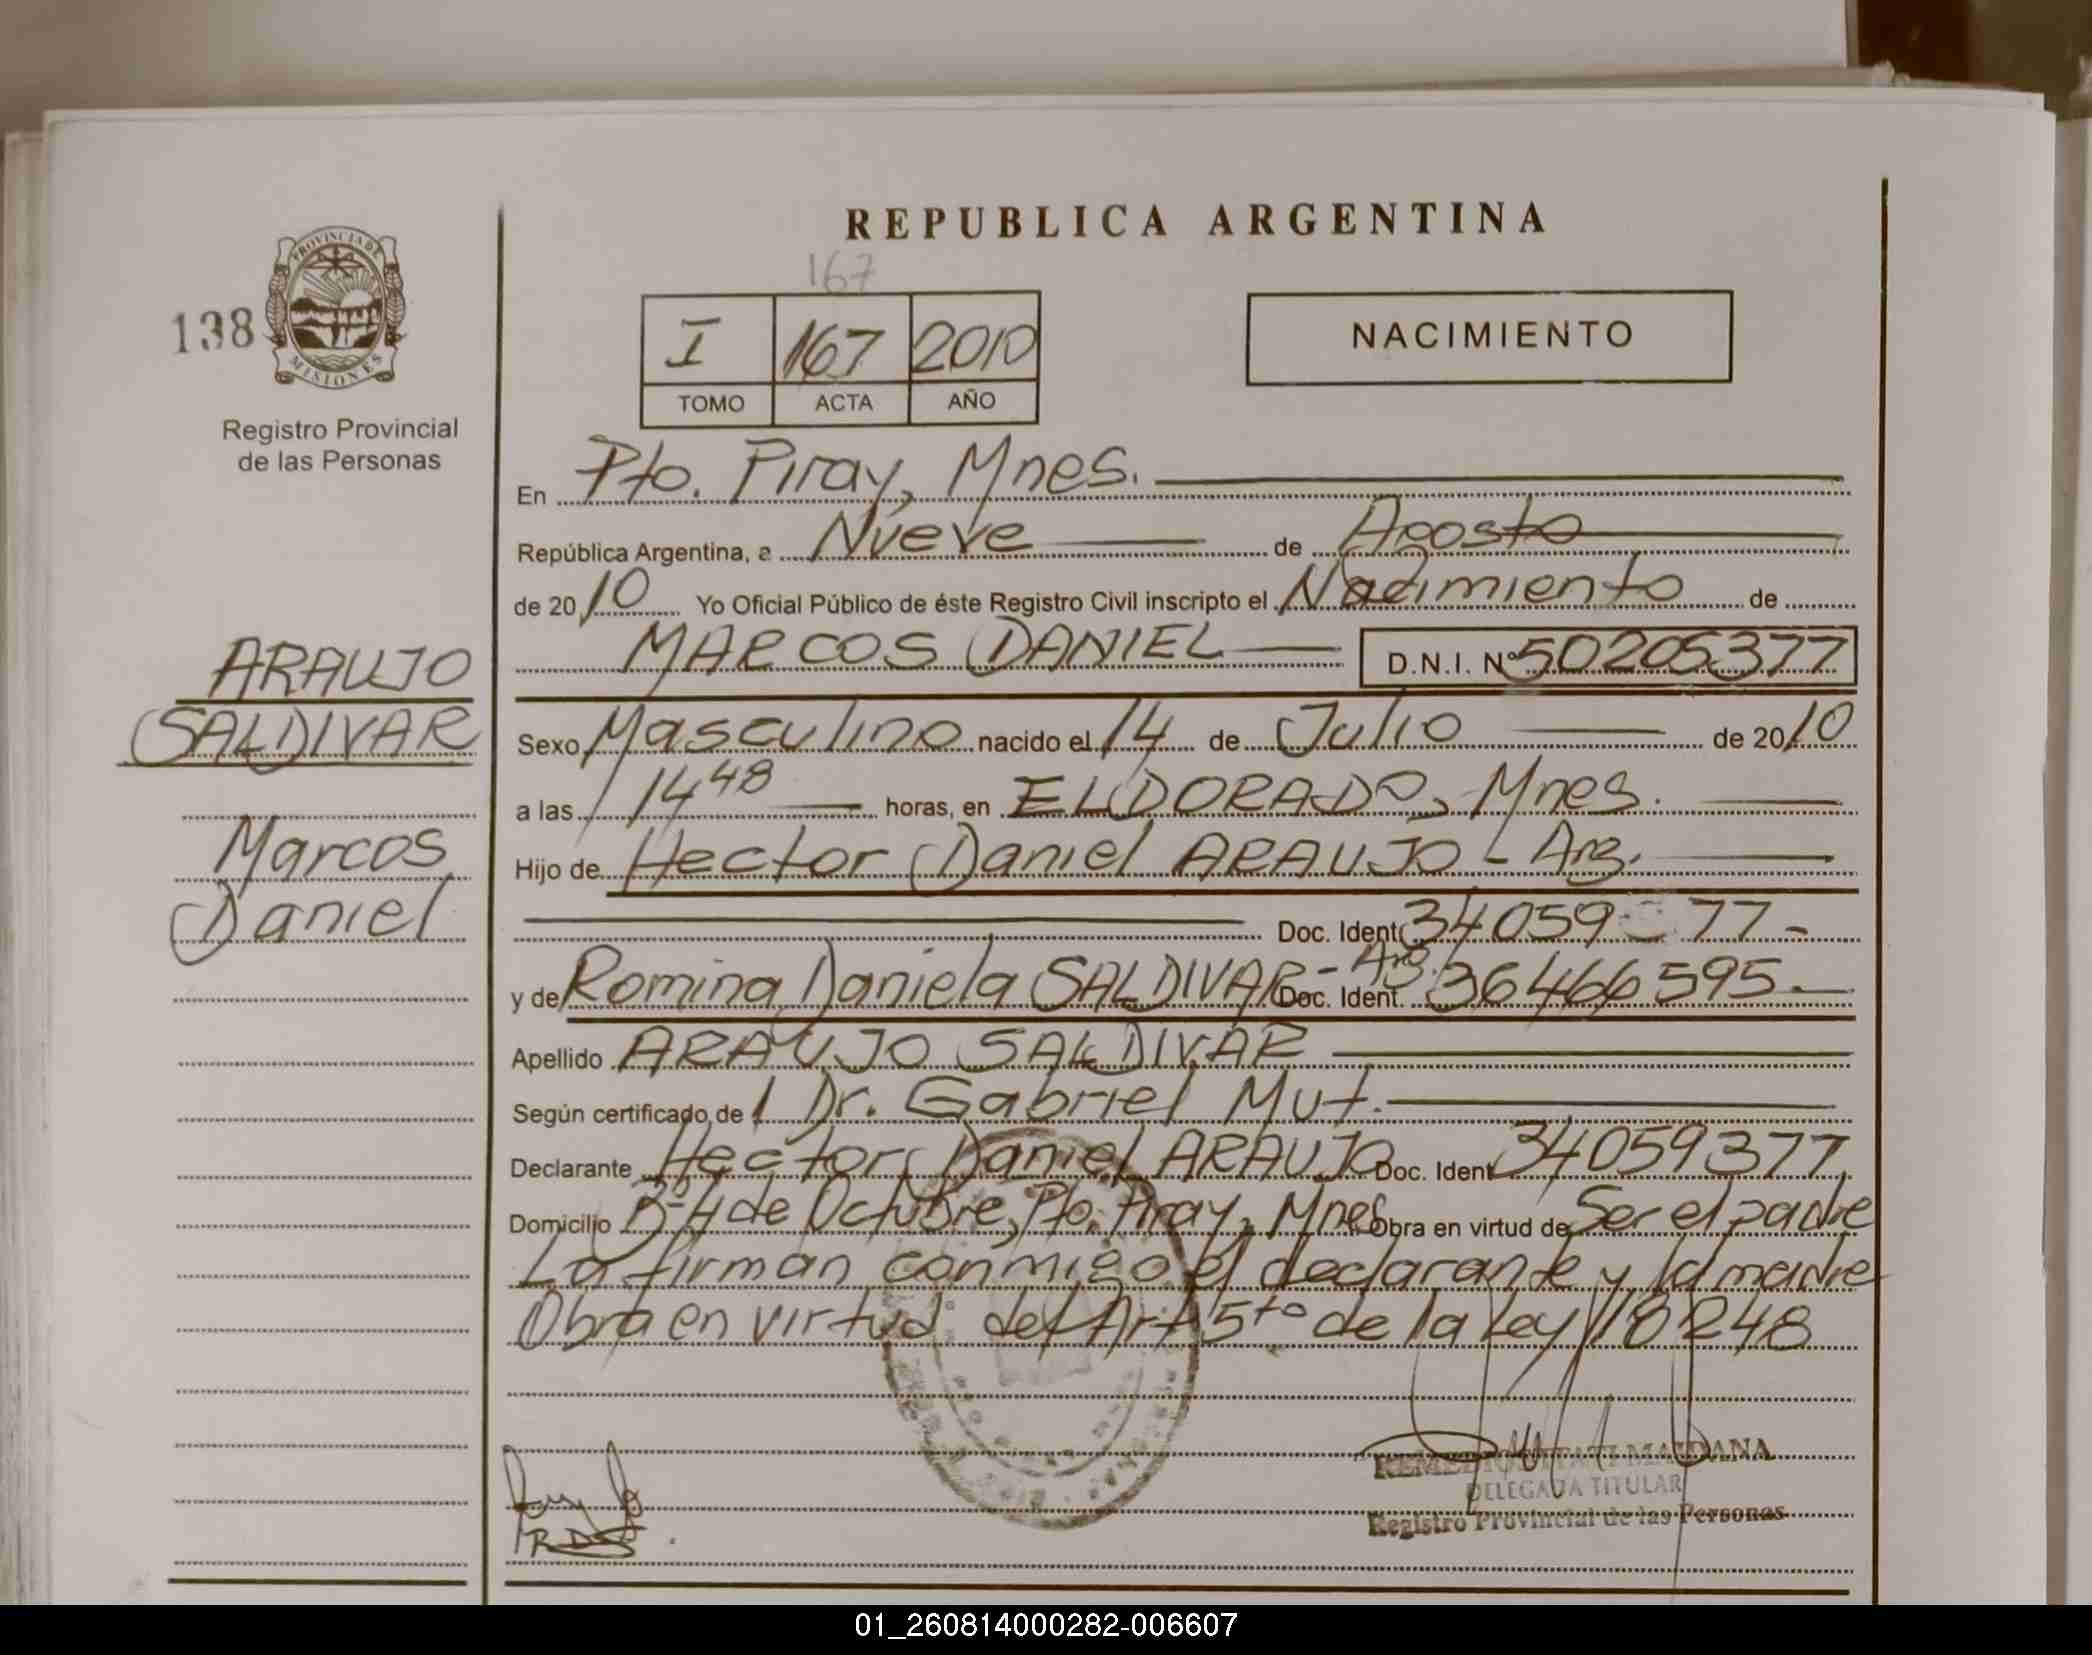 REPUBLICA ARGENTINA
167
138
PROVINCIA DE
MISIONES
Registro Provincial
de las Personas
I 167 2010
TOMO ACTA AÑO
NACIMIENTO
ARAUJO
SALDIVAR
Marcos
Daniel
En Pto. Piray, Mnes.
República Argentina, a Nueve de Agosto
de 2010 Yo Oficial Público de éste Registro Civil inscripto el Nacimiento de
MARCOS DANIEL D.N.I. Nº 50205377
Sexo Masculino nacido el 14 de Julio de 2010
a las 14 48 horas, en ELDORADO, Mnes.
Hijo de Hector Daniel ARAUJO - Arg.
Doc. Ident. 34059 77 -
y de Romina Daniela SALDIVAR - Arg. Doc. Ident. 36466595 -
Apellido ARAUJO SALDIVAR
Según certificado de Dr. Gabriel Mut.
Declarante Hector Daniel ARAUJO Doc. Ident 34059377
Domicilio Bº 4 de Octubre, Pto. Piray, Mnes Obra en virtud de Ser el padre
La firman conmigo el declarante y la madre
Obra en virtud del Art 5to de la Ley 18248
RDS
DELEGADA TITULAR
Registro Provincial de las Personas
01_260814000282-006607